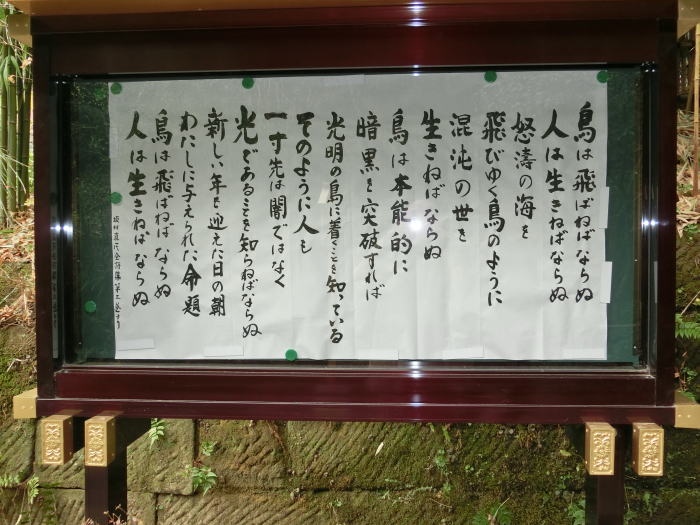 鳥は飛ばねばならぬ
人は生きねばならぬ
怒濤の海を
飛びゆく鳥のように
混沌の世を
生きねばならぬ
鳥は本能的に
暗黒を突破すれば
光明の島に着くことを知っている
そのように人も
一寸先は闇ではなく
光であることを知らねばならぬ
新しい年を迎えた日の朝
わたしに与えられた命題
鳥は飛ばねばならぬ
人は生きねばならぬ
坂村真民全詩集第三巻より